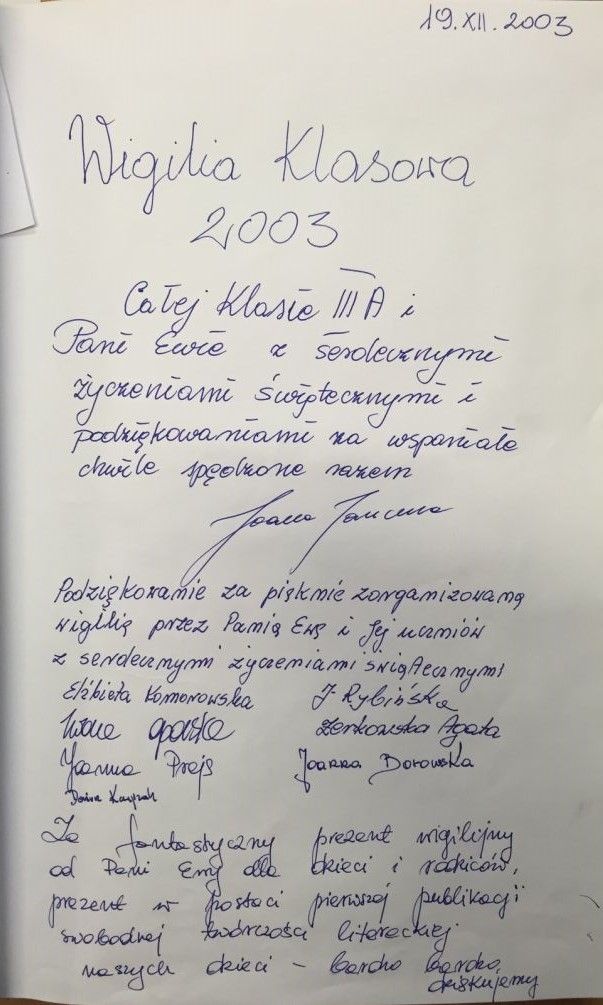 19.XII.2003
Wigilia Klasowa
2003
Całej Klasie III A i
Pani Ewie z serdecznymi
życzeniami świątecznymi i
podziękowaniami za wspaniałe
chwile spędzone razem
Joanna
Podziękowanie za pięknie zorganizowaną
wigilię przez Panią Ewę i Jej uczniów
z serdecznymi życzeniami świątecznymi
Elżbieta Komorowska J. Rybińska
Żerkowska Agata
Joanna Prejs Joanna Borowska
Za fantastyczny prezent wigilijny
od Pani Ewy dla dzieci i rodziców,
prezent w postaci pierwszej publikacji
swobodnej twórczości literackiej
naszych dzieci – bardzo bardzo
dziękujemy